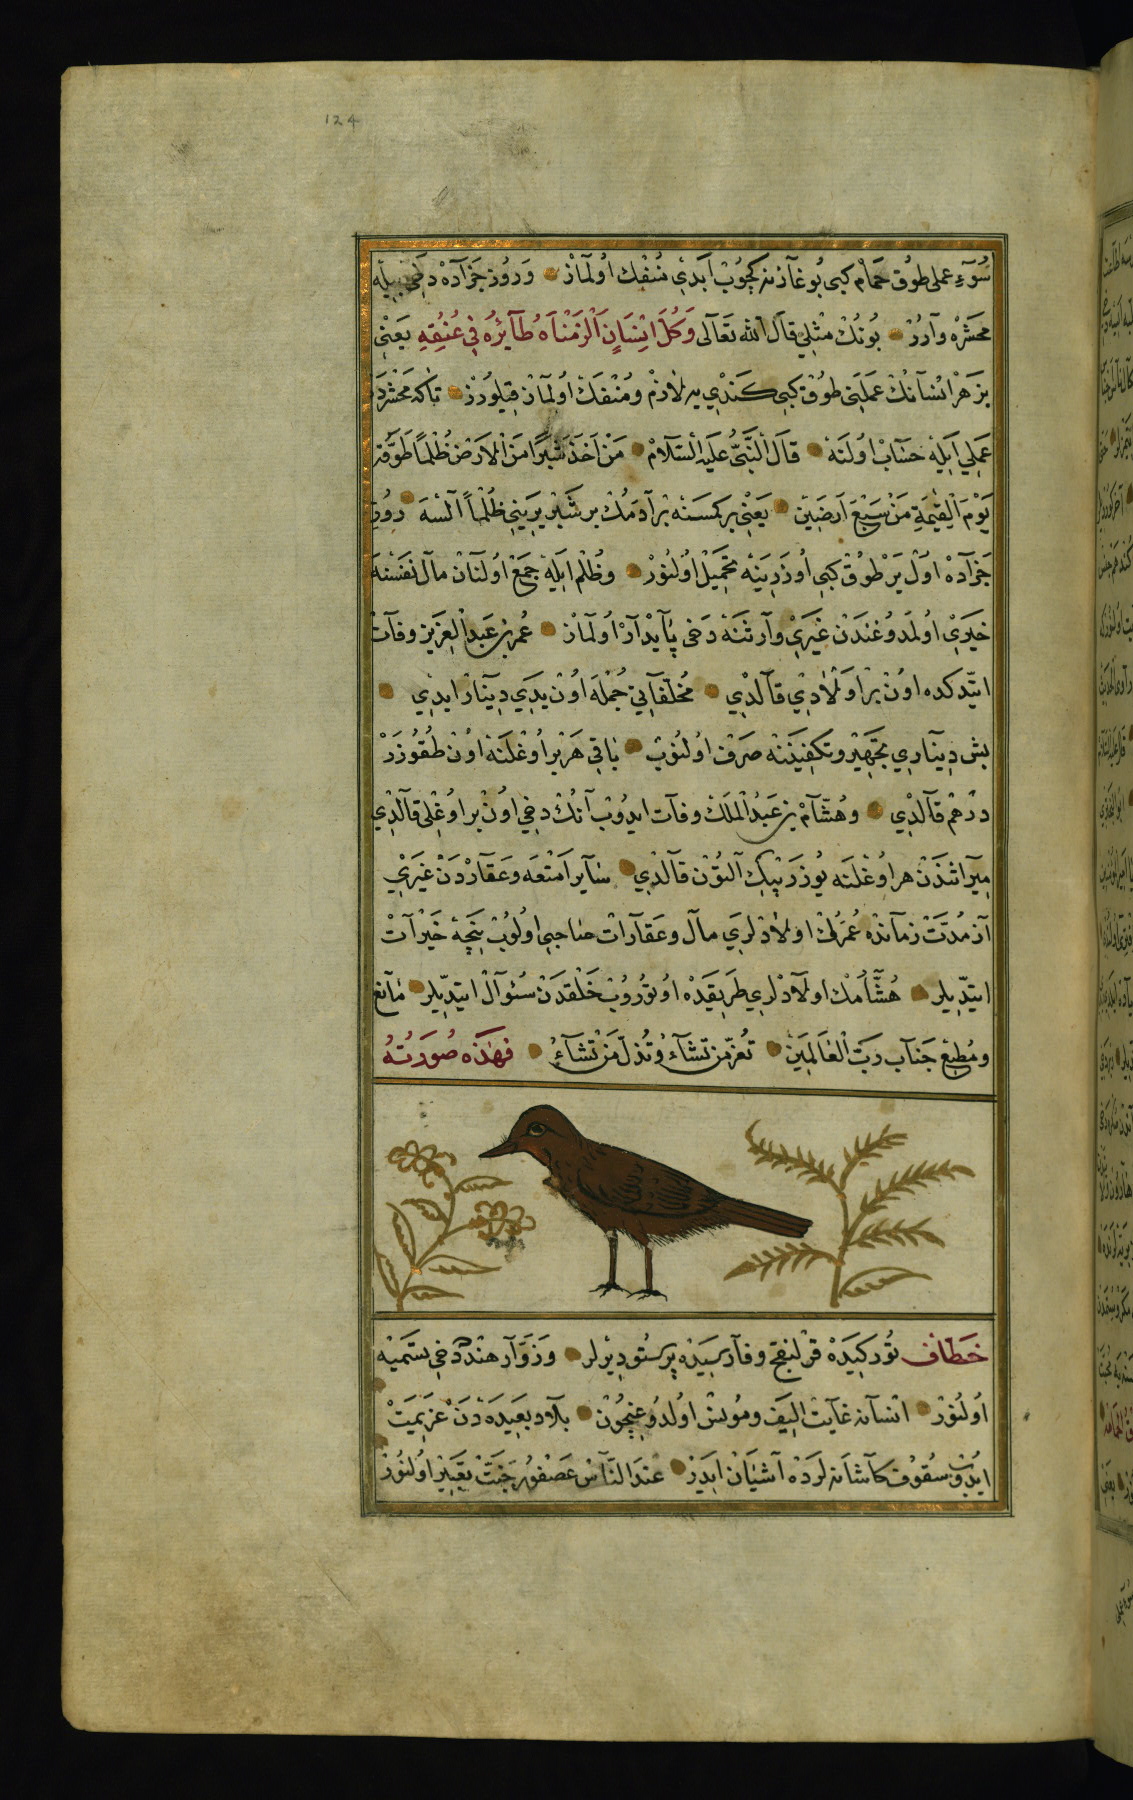 124
سُوٓءِ عملى طوُق حَمَاْم كبى بُوغاٰزنه كچُوبْ اَبَدىٖ مُنْفك اُولماٰز وَرَوُز جَزاٰدهْ دخى بيله
محشرْه واٰرُرْ بُونُكْ مِثْلىٖ قاَلَ الله تعَالَى وَكُلَّ اِنْسَانٍ اَلْزَمْنَاهُ طَآئِرَهُ فىٖ عُنُقِهِ يَعْنىٖ
بز هَرْ اِنْساٰنُكْ عملَنى طوُقْ كبى كَنْدىٖ يه لاٰزِمْ وَمُنْفَكْ اُولماٰزْ قيلوُرُزْ تاكه مَحْشردَه
عَملى اَيلهْ حسَابْ اوُلنَهْ قاَلَ اْلنَّبِىُّ عَلَيه اْلسَّلاٰمْ مَنْ اَخَذَ شِبْرًا مِنَ اْلاَرْضِ ظُلْمًا طَوَّقَه
يَوْمَ اْلقِيٰمَةِ مِنْ سَبْعِ اَرَضِيٖنَ يَعْنىٖ بر كمسَنه بْرآدَمُكْ بر شِبرْ يريَنىٖ ظُلْماً آلسَه روُز
جَزاٰدهْ اوُلْ يَرْ طوُقْ كبى اُوزَرينَه تَحْميٖلْ اُولنُورْ وظُلْم اَيلهْ جَمعْ اوُلناَنْ ماٰل نَفسْنهَ
خيرىٖ اوُلمَدوُغندَنْ غَيرىٖ واٰرثَنهْ دَخى پاٰيْداٰرْ اوُلماٰز عُمر بن عَبدُ اْلعزيز وفاٰتْ
ايتدكده اوُنْ بر اَوْلاٰدىٖ قاٰلدْىٖ مُخلّفاٰتىٖ جُمْلَه اوُنْ يَدىٖ ديٖناٰر ايدىٖ
بش ديٖناٰرىٖ تجهيٖز وتكفيٖنَنه صَرْف اوُلنُوبْ باٰقىٖ هَرْ بر اوُغْلنَه اوُنْ طُقوُزَرْ
درْهمْ قاٰلدْىٖ وهُشّاٰمْ بن عَبدُ اْلمَلكْ وفاٰت ايدُوبْ آنُكْ دخىٖ اوُنْ بر اوُغْلى قاٰلدْىٖ
ميٖراٰثنَدنْ هر اوُغلنَه يُوزَر بيٖكْ آلتوُنْ قاٰلدْىٖ ساٰير اَمْتعَه وعَقاٰرْدَنْ غيَرىٖ
آز مُدّتْ زماٰندَه عُمَرُكْ اوْلاٰدْ لرىٖ ماٰل وعَقاٰراٰت صاٰحبى اوُلوُبْ نيٖچَه خَيرْاٰتْ
ايتدّيلر هُشّاٰمُكْ اوْلاٰدْ لرىٖ طَريٖقدَهْ اوُتوُروُبْ خَلْقدَنْ سُئواٰلْ ايتدّيلر ماٰنع
ومُعْطىٖ جَناَب رَبُّ اْلعَالَميٖنْ تُعِزُّ مَنْ تَشَاءُ وَتُذِلُّ مَنْ تَشَاءُ فهٰذَه صُورَتُهُ
خَطّاٰف تُورْكيدَهْ قرْلنغج وفاٰرسيدَه پرَستُو ديٖرلر وَزَوّاٰر هنْد دخى تسَمْيَه
اوُلنُوْر انْساٰنه غاٰيَتْ اليٖف ومُونسْ اوُلدُوغيچُونْ بلاٰد بَعيٖدَه دَنْ عَزيٖمَتْ
ايدُوبْ سُقوُف كاٰشاَنه لَردَه آشيَاٰنْ ايدَرْ عندَ اْلنّاٰسْ عَصْفوُر جَنّتْ تعَبيٖر اوُلنُورْ